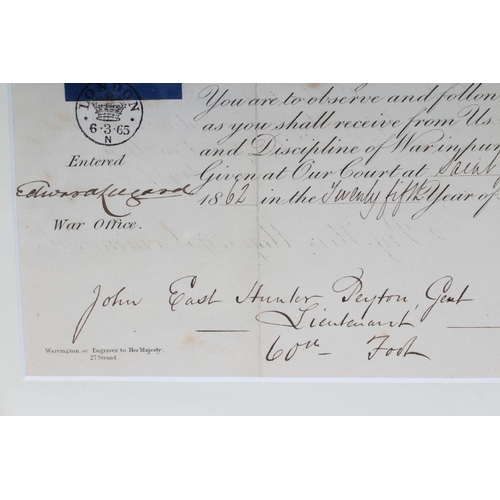 LONDON
6·3·65
N
Entered
War Office.
You are to observe and follow
as you shall receive from Us
and Discipline of War in pur
Given at Our Court at Saint
1862 in the Twenty fifth Year of
John East Hunter Peyton, Gent
Lieutenant
60th Foot
Warrington sc Engraver to Her Majesty.
27 Strand.